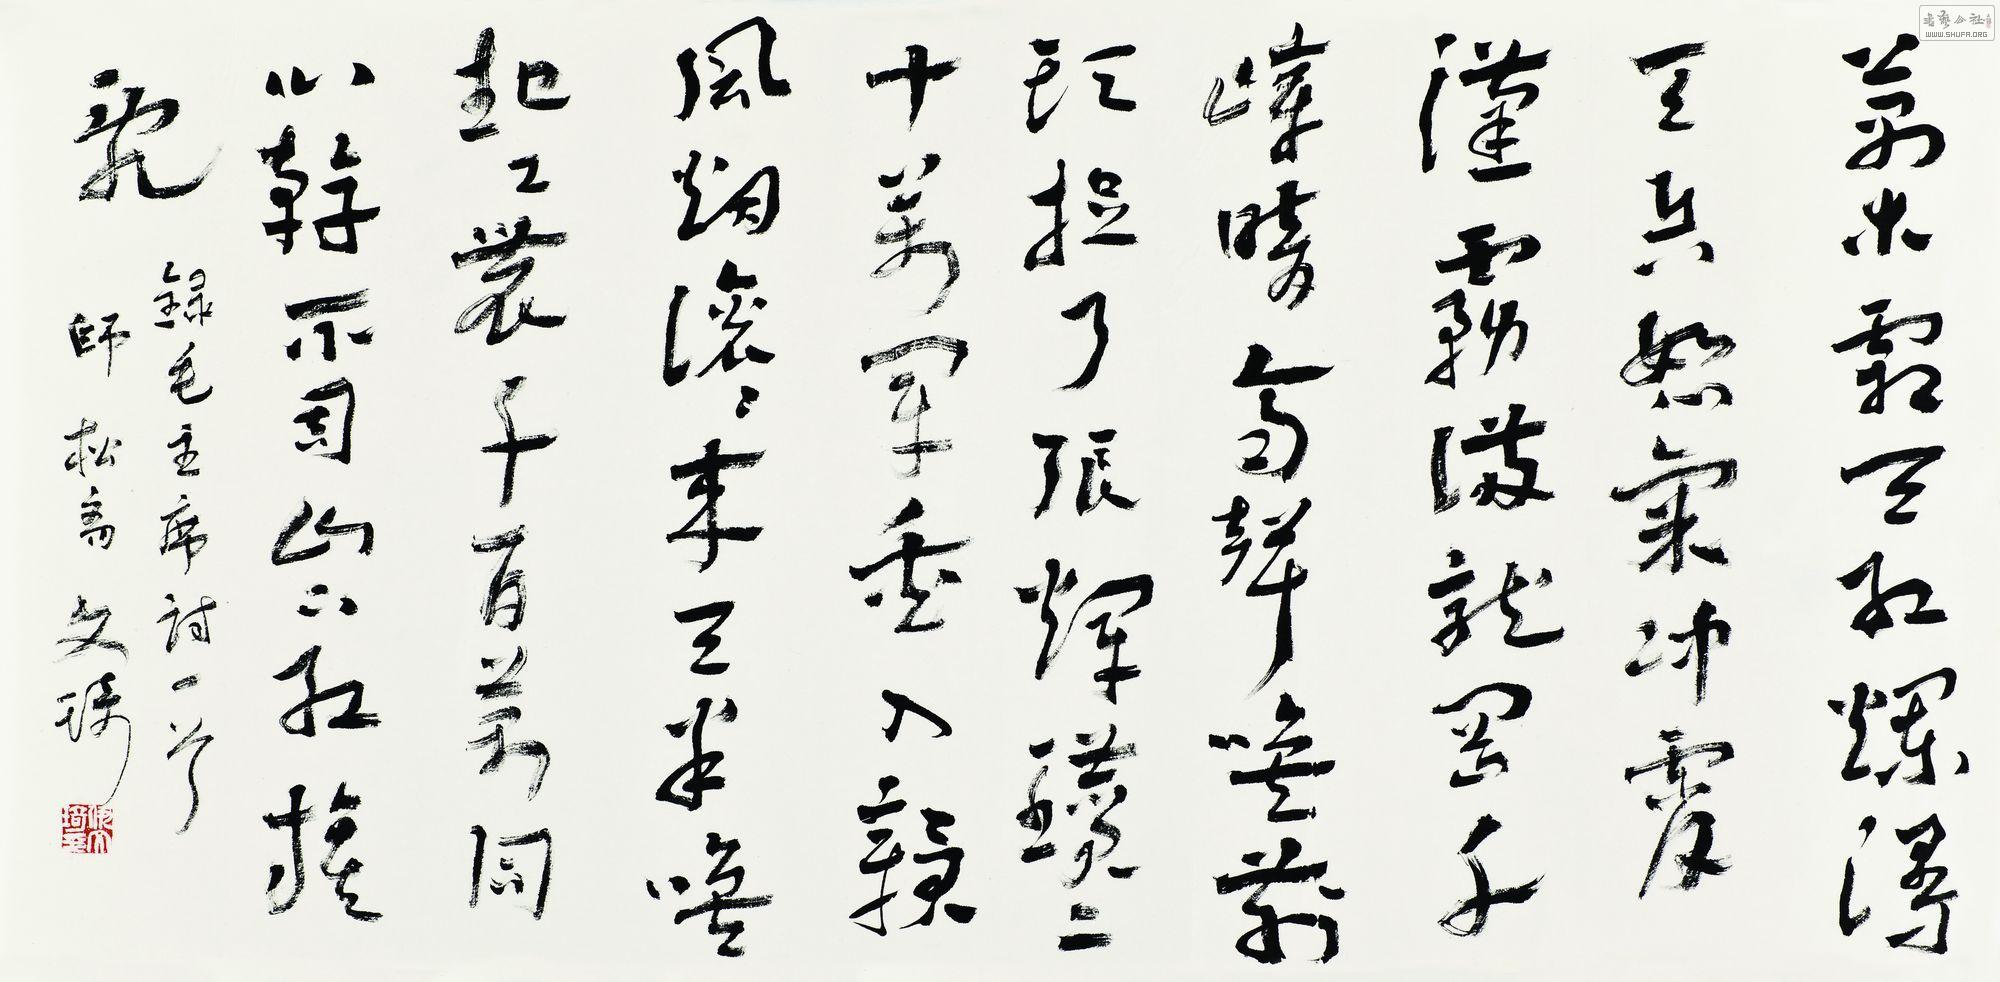 萬木霜天紅爛漫
天兵怒氣冲霄
漢霧滿龍岡千
嶂暗齊聲喚前
頭捉了張輝瓚二
十萬軍重入贛
風烟滾滾來天半喚
起工農千百萬同
心幹不周山下紅旗
亂
錄毛主席詩一首
師松齋文琦
書藝公社
WWW.SHUFA.ORG